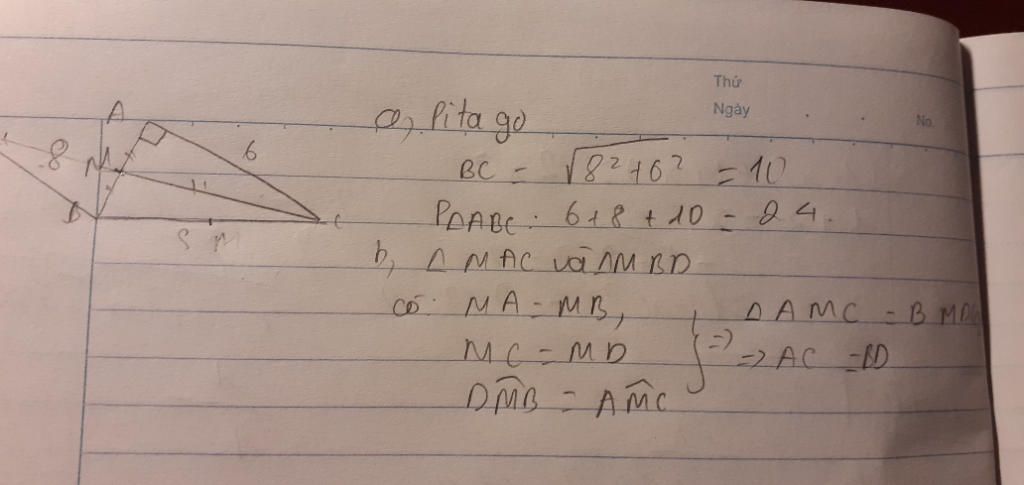 Thứ
Ngày
No.
A
8
6
M
B
C
a, Pitago
BC = √8²+6² = 10
PΔABC. 6+8+10 = 24.
b, Δ MAC và ΔMBD
có: MA = MB,
MC = MD
DMB = AMC
} =>
Δ AMC = BMD
=> AC = BD